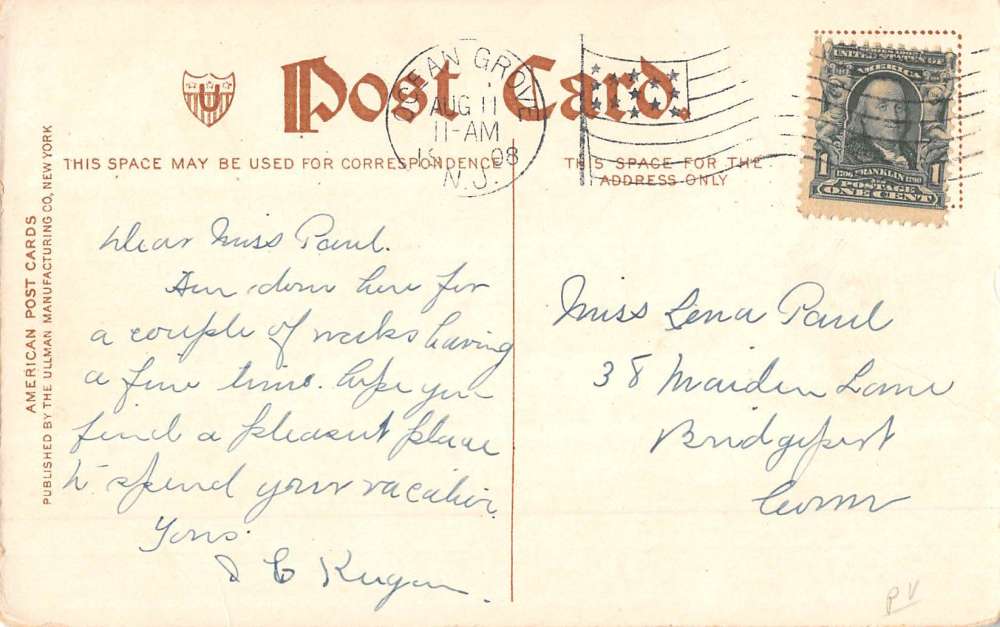 Post Card.
U
OCEAN GROVE
AUG 11
11-AM
08
N.J.
UNITED STATES OF
AMERICA
1 1
1706 FRANKLIN 1790
POSTAGE
ONE CENT
THIS SPACE MAY BE USED FOR CORRESPONDENCE
THIS SPACE FOR THE
ADDRESS ONLY
AMERICAN POST CARDS
PUBLISHED BY THE ULLMAN MANUFACTURING CO, NEW YORK
Dear Miss Paul.
Am down here for
a couple of weeks having
a fine time. hope you
find a pleasant place
to spend your vacation.
Yours
Miss Lena Paul
38 Maiden Lane
Bridgeport
Conn
PV